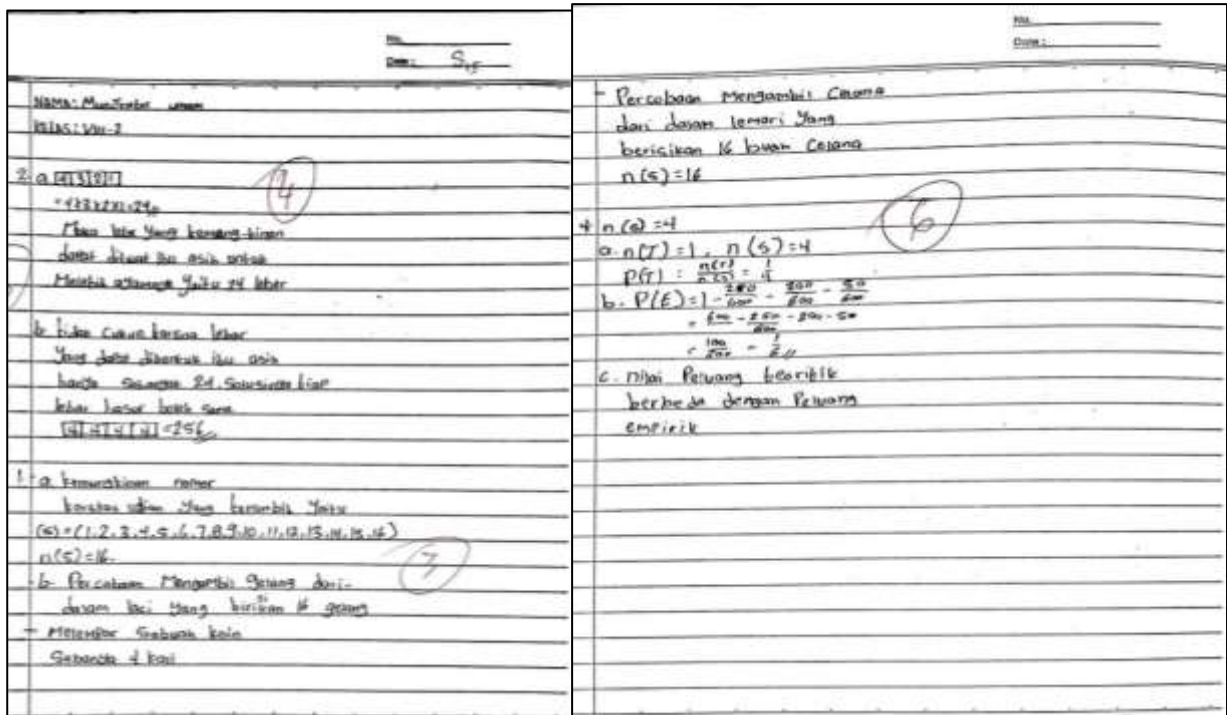 No.
Date: S,5
NAMA: Muntomber umam
KELAS: VIII-2
2. a. 4 3 2 1 4
= 4x3x2x1 = 24
Maka label yang kemungkinan
dapat dibuat ibu asih untuk
Melebih ayamnya yaitu 24 leber
b. tidak cukup karena leber
yang dapat dibentuk ibu asih
hanya sebanyak 24. Solusinya tiap
leber boleh sama
4 4 4 4 = 256
1. a. kemungkinan nomor
yang terambil yaitu
(S) = (1,2,3,4,5,6,7,8,9,10,11,12,13,14,15,16)
n(S) = 16. 7
b. Percobaan Mengambil gelang dari
dalam laci yang birisikan 16 gelang
- Melempar Sebuah koin
Sebanyak 4 kali
No.
Date:
- Percobaan Mengambil Celana
dari dalam lemari yang
berisikan 16 buah Celana
n(s) = 16
4 n(s) = 4 6
a. n(T) = 1, n(s) = 4
P(T) = n(T)/n(s) = 1/4
b. P(E) = 1 - 250/600 - 200/600 - 50/600
= 600 - 250 - 200 - 50/600
= 100/600 = 1/6
c. nilai Peluang teoritik
berbeda dengan Peluang
empirik